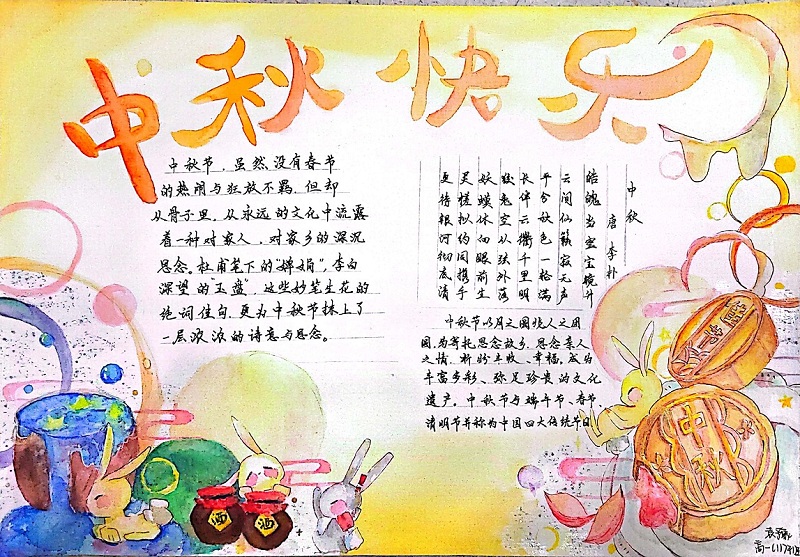 中秋快乐
中秋节,虽然没有春节
的热闹与狂放不羁,但却
从骨子里,从永远的文化中流露
着一种对家人、对家乡的深沉
思念。杜甫笔下的“婵娟”,李白
深望的“玉盘”,这些妙笔生花的
绝词佳句,更为中秋节抹上了
一层浓浓的诗意与思念。
中秋
唐 李朴
皓魄当空宝镜升
云间仙籁寂无声
平分秋色一轮满
长伴云衢千里明
狡兔空从弦外落
妖蟆休向眼前生
灵槎拟约同携手
更待银河彻底清
中秋节以月之圆兆人之团
圆,为寄托思念故乡,思念亲人
之情,祈盼丰收、幸福,成为
丰富多彩、弥足珍贵的文化
遗产。中秋节与端午节、春节、
清明节并称为中国四大传统节日
中秋
酒
酒